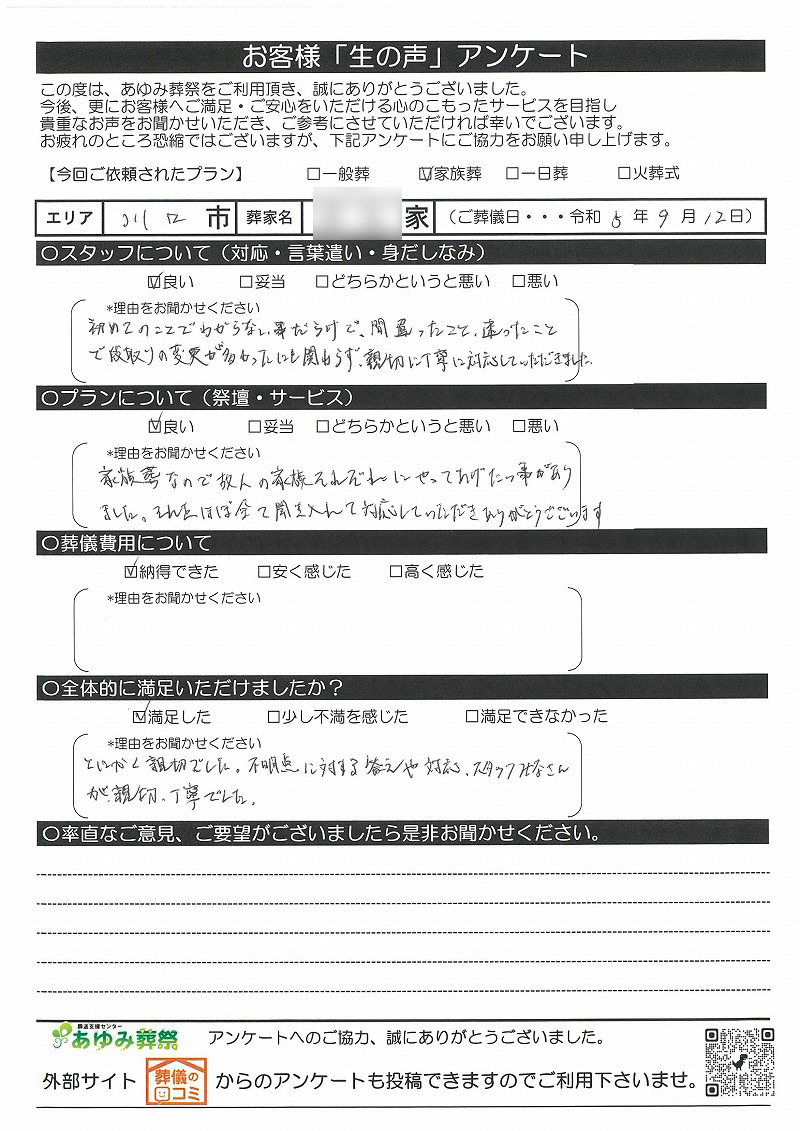 お客様「生の声」アンケート
この度は、あゆみ葬祭をご利用頂き、誠にありがとうございました。
今後、更にお客様へご満足・ご安心をいただける心のこもったサービスを目指し
貴重なお声をお聞かせいただき、ご参考にさせていただければ幸いでございます。
お疲れのところ恐縮ではございますが、下記アンケートにご協力をお願い申し上げます。
【今回ご依頼されたプラン】 □一般葬 ☑家族葬 □一日葬 □火葬式
エリア 川口 市 葬家名 家 （ご葬儀日・・・令和 5 年 9 月 12日）
○スタッフについて（対応・言葉遣い・身だしなみ）
☑良い □妥当 □どちらかというと悪い □悪い
*理由をお聞かせください
初めてのことでわからない事だらけで、間違ったこと、迷ったこと
で段取りの変更が多かったにも関わらず、親切に丁寧に対応していただきました.
○プランについて（祭壇・サービス）
☑良い □妥当 □どちらかというと悪い □悪い
*理由をお聞かせください
家族葬なので故人の家族それぞれにやってあげたい事があり
ました。それをほぼ全て聞き入れて対応していただきありがとうございます
○葬儀費用について
☑納得できた □安く感じた □高く感じた
*理由をお聞かせください
○全体的に満足いただけましたか？
☑満足した □少し不満を感じた □満足できなかった
*理由をお聞かせください
とにかく親切でした。不明点に対する答えや対応、スタッフみなさん
が、親切、丁寧でした。
○率直なご意見、ご要望がございましたら是非お聞かせください。
葬送支援センター
あゆみ葬祭 アンケートへのご協力、誠にありがとうございました。
外部サイト 葬儀の口コミ からのアンケートも投稿できますのでご利用下さいませ。